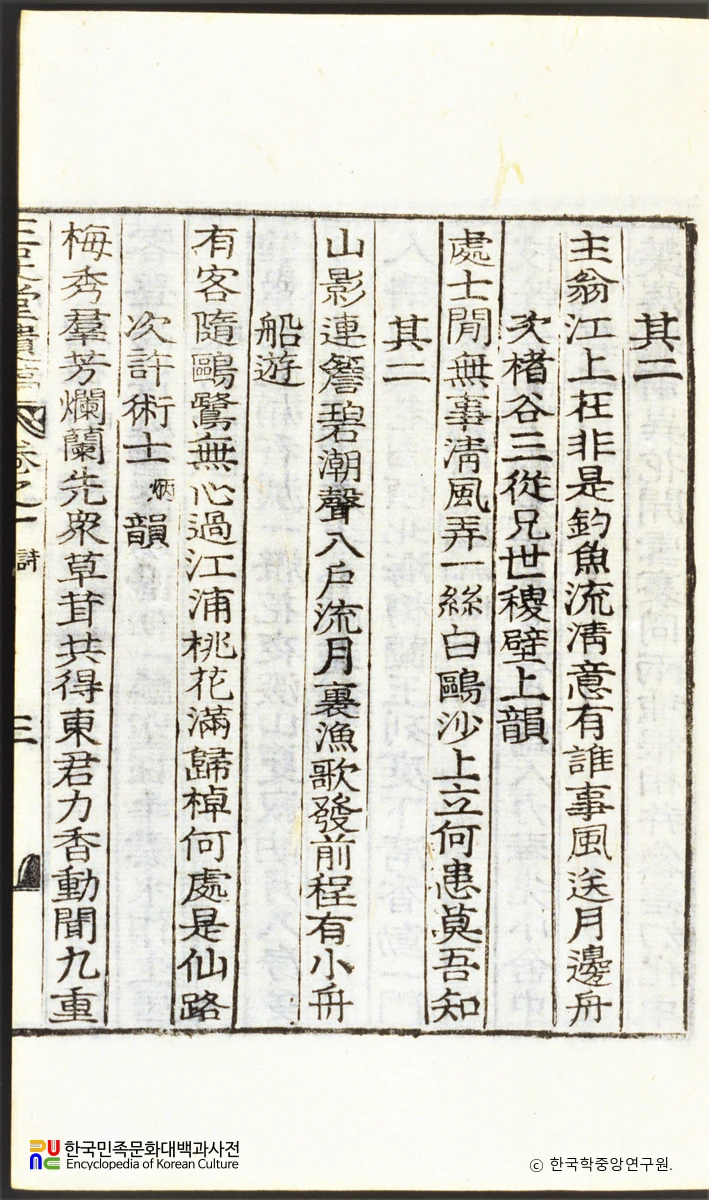 其二
主翁江上在非是釣魚流淸意有誰事風送月邊舟
次楮谷三從兄世稷壁上韻
處士閒無事淸風弄一絲白鷗沙上立何患莫吾知
其二
山影連簷碧潮聲入戶流月裏漁歌發前程有小舟
船遊
有客隨鷗鷺無心過江浦桃花滿歸棹何處是仙路
次許術士炳韻
梅秀羣芳爛蘭先衆草茸共得東君力香動聞九重
堂遺 卷之一 詩 三
한국민족문화대백과사전
Encyclopedia of Korean Culture
ⓒ 한국학중앙연구원.